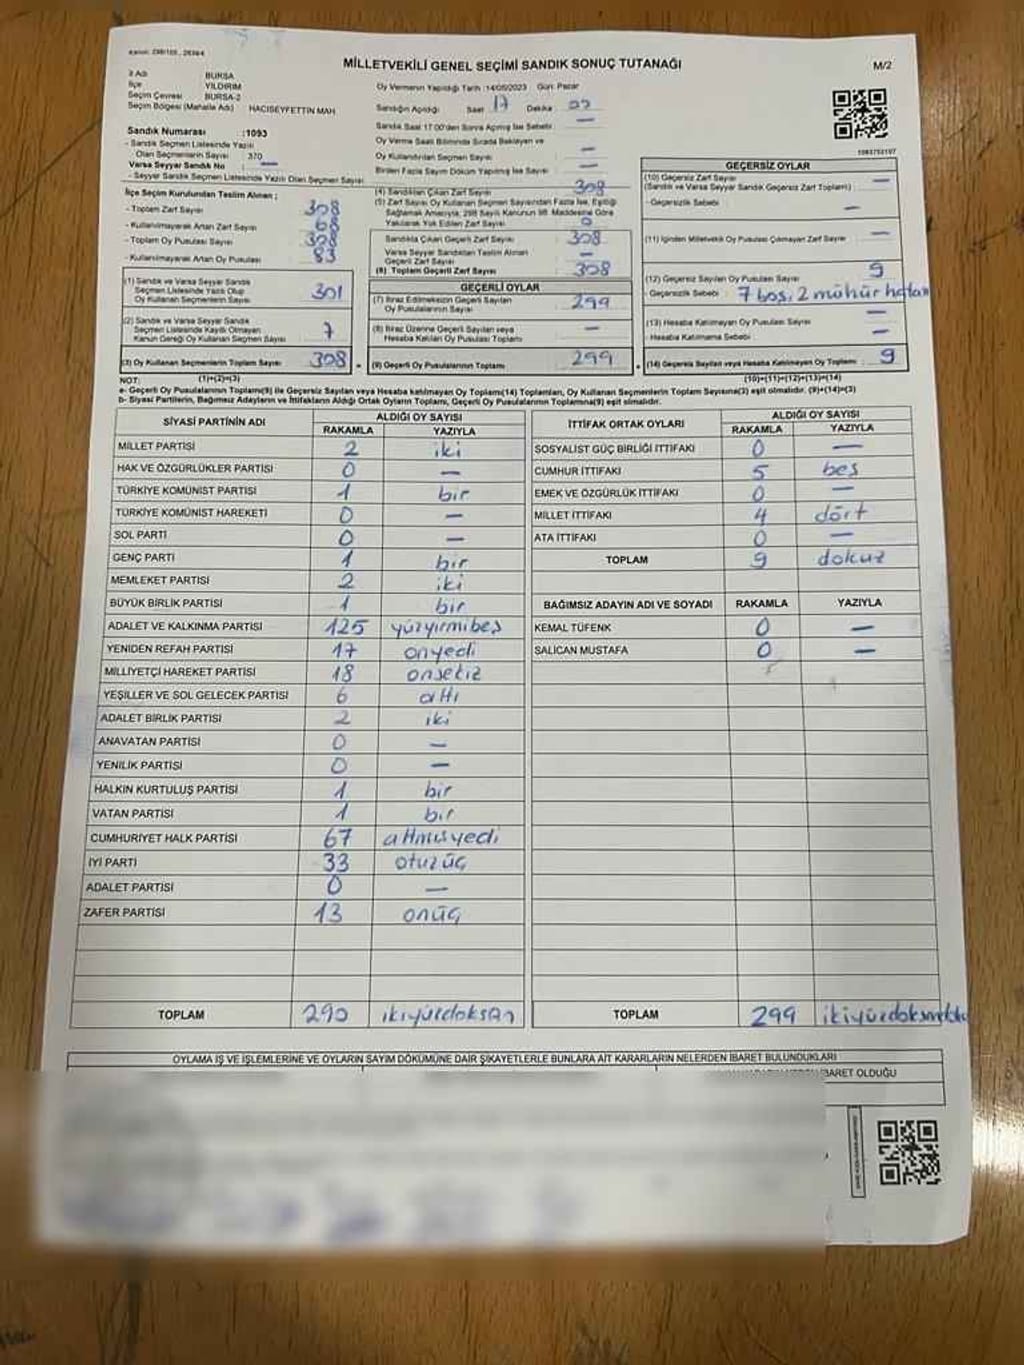 MİLLETVEKİLİ GENEL SEÇİMİ SANDIK SONUÇ TUTANAĞI
M/2
İl Adı BURSA
İlçe YILDIRIM
Seçim Çevresi BURSA-2
Seçim Bölgesi (Mahalle Adı) HACISEYFETTİN MAH
Sandık Numarası :1093
- Sandık Seçmen Listesinde Yazılı
Olan Seçmenlerin Sayısı 370
Varsa Seyyar Sandık No —
- Seyyar Sandık Seçmen Listesinde Yazılı Olan Seçmen Sayısı
İlçe Seçim Kurulundan Teslim Alınan ;
- Toplam Zarf Sayısı 308
- Kullanılmayarak Artan Zarf Sayısı 68
- Toplam Oy Pusulası Sayısı 308
- Kullanılmayarak Artan Oy Pusulası 83
(1) Sandık ve Varsa Seyyar Sandık
Seçmen Listesinde Yazılı Olup
Oy Kullanan Seçmenlerin Sayısı 301
(2) Sandık ve Varsa Seyyar Sandık
Seçmen Listesinde Kayıtlı Olmayan
Kanun Gereği Oy Kullanan Seçmen Sayısı 7
(3) Oy Kullanan Seçmenlerin Toplam Sayısı 308
Oy Vermenin Yapıldığı Tarih :14/05/2023 Gün: Pazar
Sandığın Açıldığı Saat 17 Dakika
Sandık Saat 17:00'den Sonra Açılmış İse Sebebi —
Oy Verme Saati Bitiminde Sırada Bekleyen ve
Oy Kullandırılan Seçmen Sayısı —
Birden Fazla Sayım Döküm Yapılmış İse Sayısı —
(4) Sandıktan Çıkan Zarf Sayısı 308
(5) Zarf Sayısı Oy Kullanan Seçmen Sayısından Fazla İse, Eşitliği
Sağlamak Amacıyla, 298 Sayılı Kanunun 98. Maddesine Göre
Yakılarak Yok Edilen Zarf Sayısı 0
Sandıkta Çıkan Geçerli Zarf Sayısı 308
Varsa Seyyar Sandıktan Teslim Alınan
Geçerli Zarf Sayısı —
(6) Toplam Geçerli Zarf Sayısı 308
GEÇERLİ OYLAR
(7) İtiraz Edilmeksizin Geçerli Sayılan
Oy Pusulalarının Sayısı 299
(8) İtiraz Üzerine Geçerli Sayılan veya
Hesaba Katılan Oy Pusulası Toplamı —
(9) Geçerli Oy Pusulalarının Toplamı 299
1093753197
GEÇERSİZ OYLAR
(10) Geçersiz Zarf Sayısı
(Sandık ve Varsa Seyyar Sandık Geçersiz Zarf Toplamı) —
- Geçersizlik Sebebi —
(11) İçinden Milletvekili Oy Pusulası Çıkmayan Zarf Sayısı —
(12) Geçersiz Sayılan Oy Pusulası Sayısı 9
- Geçersizlik Sebebi : 7 boş, 2 mühür hatası
(13) Hesaba Katılmayan Oy Pusulası Sayısı —
- Hesaba Katılmama Sebebi —
(14) Geçersiz Sayılan veya Hesaba Katılmayan Oy Toplamı 9
NOT: (1)+(2)=(3) (10)+(11)+(12)+(13)=(14)
a- Geçerli Oy Pusulalarının Toplamı(9) ile Geçersiz Sayılan veya Hesaba katılmayan Oy Toplamı(14) Toplamları, Oy Kullanan Seçmenlerin Toplam Sayısına(3) eşit olmalıdır. (9)+(14)=(3)
b- Siyasi Partilerin, Bağımsız Adayların ve İttifakların Aldığı Ortak Oyların Toplamı, Geçerli Oy Pusulalarının Toplamına(9) eşit olmalıdır.
SİYASİ PARTİNİN ADI ALDIĞI OY SAYISI
RAKAMLA YAZIYLA
MİLLET PARTİSİ 2 iki
HAK VE ÖZGÜRLÜKLER PARTİSİ 0 —
TÜRKİYE KOMÜNİST PARTİSİ 1 bir
TÜRKİYE KOMÜNİST HAREKETİ 0 —
SOL PARTİ 0 —
GENÇ PARTİ 1 bir
MEMLEKET PARTİSİ 2 iki
BÜYÜK BİRLİK PARTİSİ 1 bir
ADALET VE KALKINMA PARTİSİ 125 yüzyirmibeş
YENİDEN REFAH PARTİSİ 17 onyedi
MİLLİYETÇİ HAREKET PARTİSİ 18 onsekiz
YEŞİLLER VE SOL GELECEK PARTİSİ 6 altı
ADALET BİRLİK PARTİSİ 2 iki
ANAVATAN PARTİSİ 0 —
YENİLİK PARTİSİ 0 —
HALKIN KURTULUŞ PARTİSİ 1 bir
VATAN PARTİSİ 1 bir
CUMHURİYET HALK PARTİSİ 67 altmışyedi
İYİ PARTİ 33 otuzüç
ADALET PARTİSİ 0 —
ZAFER PARTİSİ 13 onüç
TOPLAM 290 ikiyüzdoksan
İTTİFAK ORTAK OYLARI ALDIĞI OY SAYISI
RAKAMLA YAZIYLA
SOSYALİST GÜÇ BİRLİĞİ İTTİFAKI 0 —
CUMHUR İTTİFAKI 5 beş
EMEK VE ÖZGÜRLÜK İTTİFAKI 0 —
MİLLET İTTİFAKI 4 dört
ATA İTTİFAKI 0 —
TOPLAM 9 dokuz
BAĞIMSIZ ADAYIN ADI VE SOYADI RAKAMLA YAZIYLA
KEMAL TÜFENK 0 —
SALİCAN MUSTAFA 0 —
TOPLAM 299
OYLAMA İŞ VE İŞLEMLERİNE VE OYLARIN SAYIM DÖKÜMÜNE DAİR ŞİKAYETLERLE BUNLARA AİT KARARLARIN NELERDEN İBARET BULUNDUKLARI
İBARET OLDUĞU